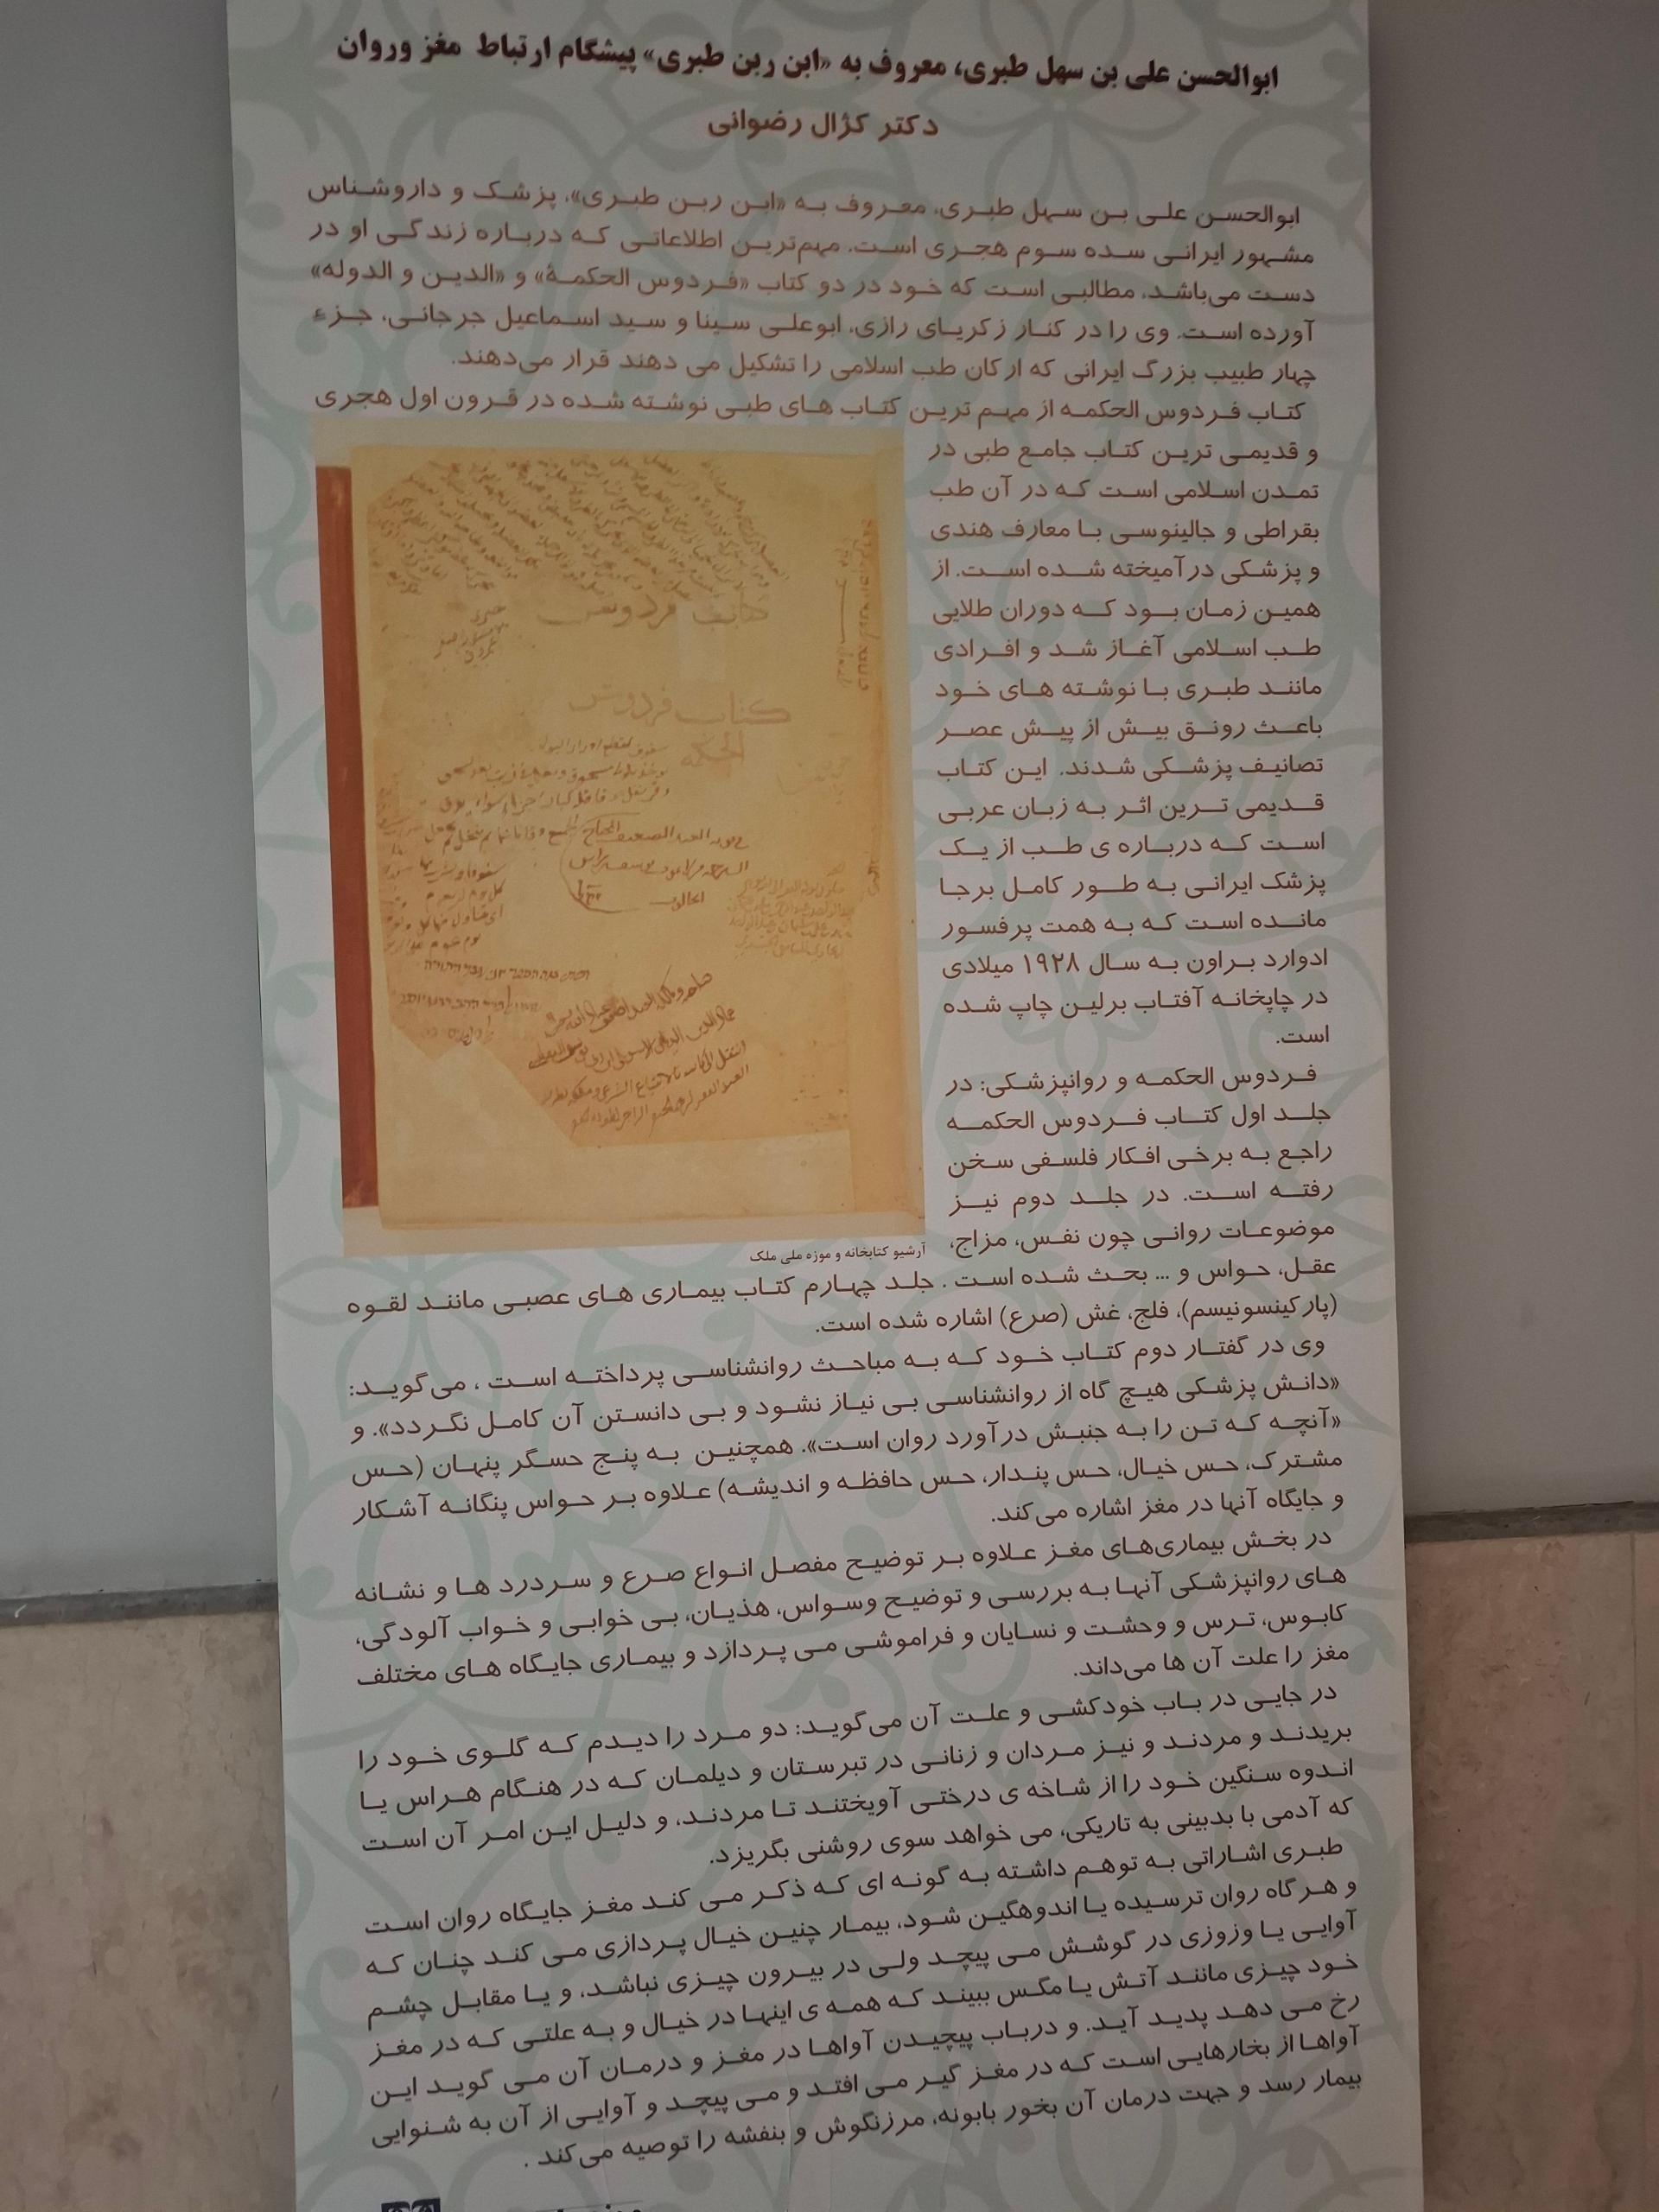 ابوالحسن علی بن سهل طبری، معروف به «ابن ربن طبری» پیشگام ارتباط مغز وروان
دکتر کژال رضوانی
ابوالحسن علی بن سهل طبری، معروف به «ابن ربن طبری»، پزشک و داروشناس
مشهور ایرانی سده سوم هجری است. مهم‌ترین اطلاعاتی که درباره زندگی او در
دست می‌باشد، مطالبی است که خود در دو کتاب «فردوس الحکمة» و «الدین و الدوله»
آورده است. وی را در کنار زکریای رازی، ابوعلی سینا و سید اسماعیل جرجانی، جزء
چهار طبیب بزرگ ایرانی که ارکان طب اسلامی را تشکیل می دهند قرار می‌دهند.
کتاب فردوس الحکمه از مهم ترین کتاب های طبی نوشته شده در قرون اول هجری
و قدیمی ترین کتاب جامع طبی در
تمدن اسلامی است که در آن طب
بقراطی و جالینوسی با معارف هندی
و پزشکی درآمیخته شده است. از
همین زمان بود که دوران طلایی
طب اسلامی آغاز شد و افرادی
مانند طبری با نوشته های خود
باعث رونق بیش از پیش عصر
تصانیف پزشکی شدند. این کتاب
قدیمی ترین اثر به زبان عربی
است که درباره ی طب از یک
پزشک ایرانی به طور کامل برجا
مانده است که به همت پرفسور
ادوارد براون به سال ۱۹۲۸ میلادی
در چاپخانه آفتاب برلین چاپ شده
است.
فردوس الحکمه و روانپزشکی: در
جلد اول کتاب فردوس الحکمه
راجع به برخی افکار فلسفی سخن
رفته است. در جلد دوم نیز
موضوعات روانی چون نفس، مزاج،
عقل، حواس و ... بحث شده است . جلد چهارم کتاب بیماری های عصبی مانند لقوه
(پارکینسونیسم)، فلج، غش (صرع) اشاره شده است.
وی در گفتار دوم کتاب خود که به مباحث روانشناسی پرداخته است ، می‌گوید:
«دانش پزشکی هیچ گاه از روانشناسی بی نیاز نشود و بی دانستن آن کامل نگردد». و
«آنچه که تن را به جنبش درآورد روان است». همچنین به پنج حسگر پنهان (حس
مشترک، حس خیال، حس پندار، حس حافظه و اندیشه) علاوه بر حواس پنگانه آشکار
و جایگاه آنها در مغز اشاره می‌کند.
در بخش بیماری‌های مغز علاوه بر توضیح مفصل انواع صرع و سردرد ها و نشانه
های روانپزشکی آنها به بررسی و توضیح وسواس، هذیان، بی خوابی و خواب آلودگی،
کابوس، ترس و وحشت و نسایان و فراموشی می پردازد و بیماری جایگاه های مختلف
مغز را علت آن ها می‌داند.
در جایی در باب خودکشی و علت آن می‌گوید: دو مرد را دیدم که گلوی خود را
بریدند و مردند و نیز مردان و زنانی در تبرستان و دیلمان که در هنگام هراس یا
اندوه سنگین خود را از شاخه ی درختی آویختند تا مردند، و دلیل این امر آن است
که آدمی با بدبینی به تاریکی، می خواهد سوی روشنی بگریزد.
طبری اشاراتی به توهم داشته به گونه ای که ذکر می کند مغز جایگاه روان است
و هرگاه روان ترسیده یا اندوهگین شود، بیمار چنین خیال پردازی می کند چنان که
آوایی یا وزوزی در گوشش می پیچد ولی در بیرون چیزی نباشد، و یا مقابل چشم
خود چیزی مانند آتش یا مگس ببیند که همه ی اینها در خیال و به علتی که در مغز
رخ می دهد پدید آید. و درباب پیچیدن آواها در مغز و درمان آن می گوید این
آواها از بخارهایی است که در مغز گیر می افتد و می پیچد و آوایی از آن به شنوایی
بیمار رسد و جهت درمان آن بخور بابونه، مرزنگوش و بنفشه را توصیه می‌کند .
کتاب فردوس
کتاب فردوس
الحکمه
آرشیو کتابخانه و موزه ملی ملک